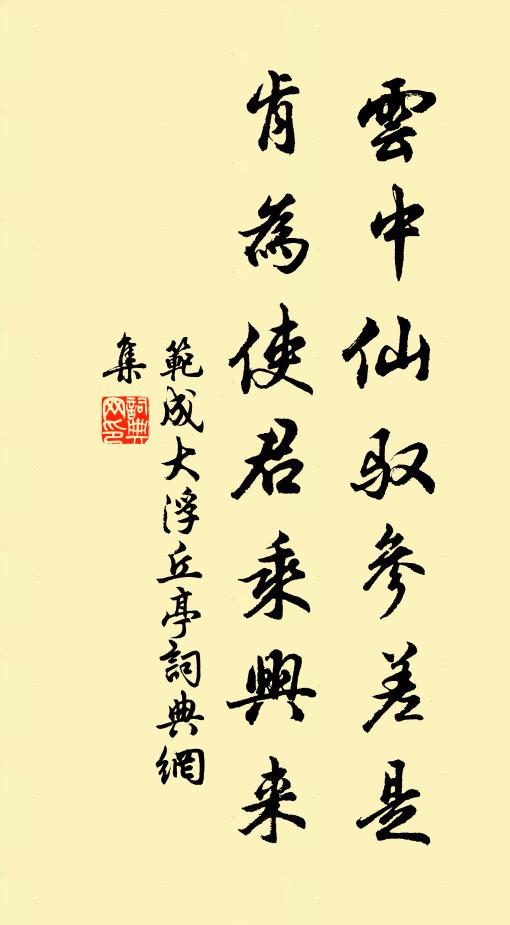 雲中仙馭參差是
肯為使君乘興来
範成大浮丘亭詞典網
集
詞典網印